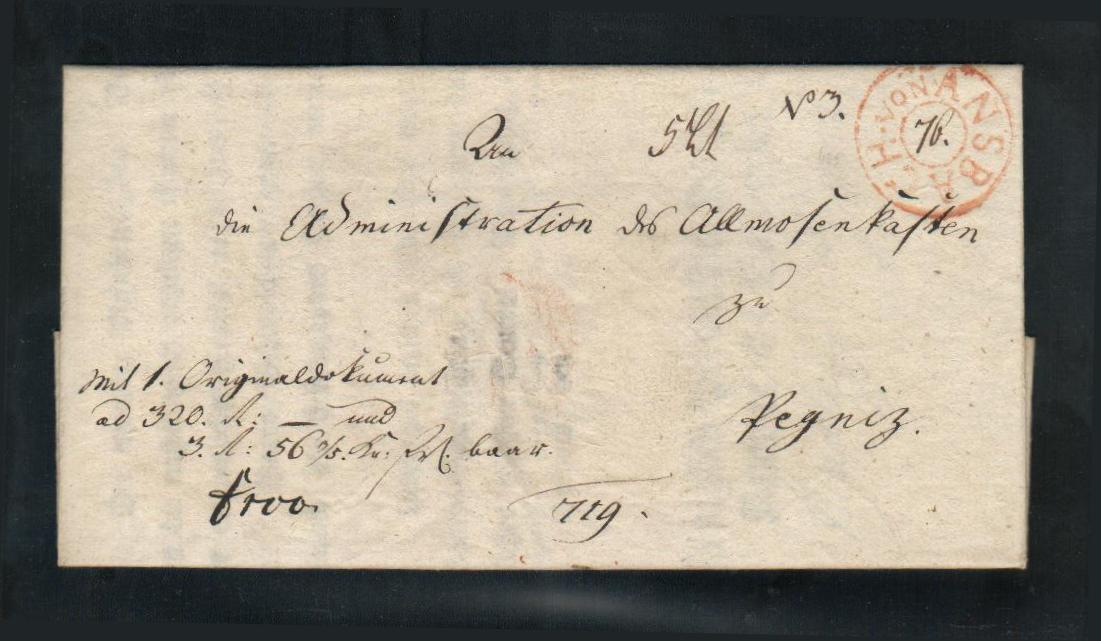 N° 3.
H. VON ANSBACH
76.
An
die Administration des Allmosenkasten
zu
Pegniz.
Mit 1. Originaldokument
ad 320. fl: — und
3. fl: 56 Kr: baar.
719.